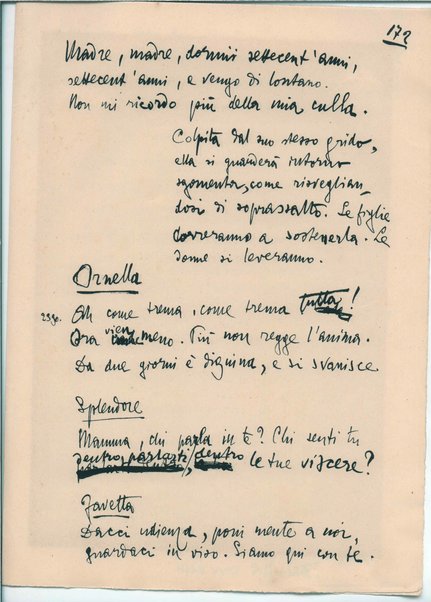 172
Madre, madre, dormii settecent'anni,
settecent'anni, e vengo di lontano.
Non mi ricordo più della mia culla.
Colpita dal suo stesso grido,
ella si guarderà intorno
sgomenta, come risveglian
dosi di soprassalto. Le figlie
correranno a sostenerla. Le
donne si leveranno.
Ornella
2290. Oh come trema, come trema tutta!
Ora vien meno. Più non regge l'anima.
Da due giorni è digiuna, e si svanisce.
Splendore
Mamma, chi parla in te? Chi senti tu
dentro parlarti, dentro le tue viscere?
Favetta
Dacci udienza, poni mente a noi,
guardaci in viso. Siamo qui con te.